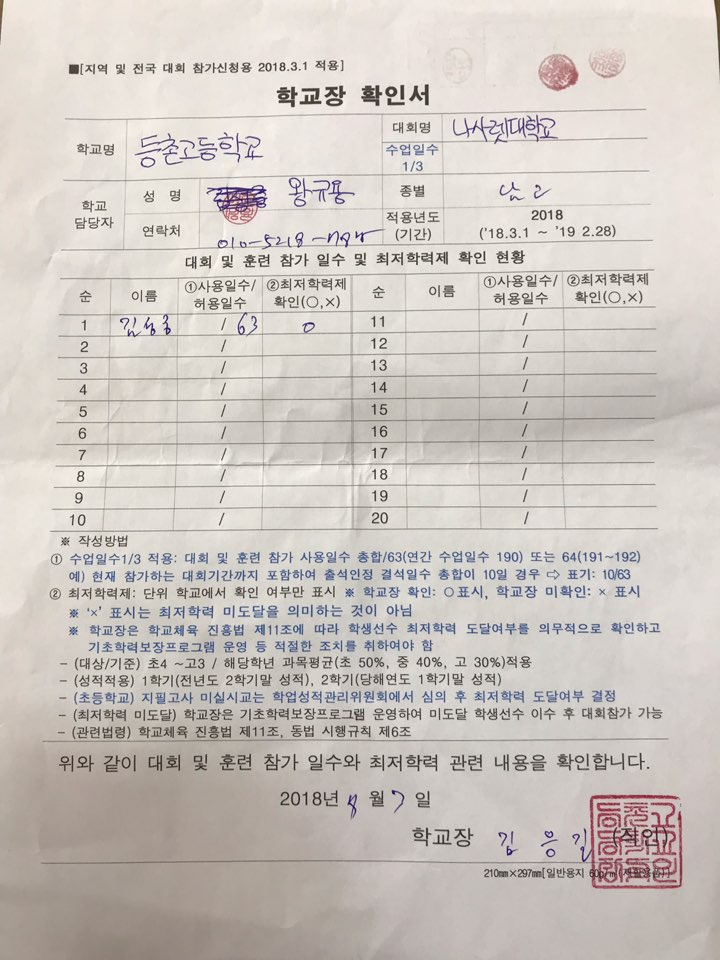 ■[지역 및 전국 대회 참가신청용 2018.3.1 적용]
학교장 확인서
학교명 등촌고등학교 대회명 나사렛대학교
수업일수 1/3
학교 담당자 성 명 왕규용 종별 남고
연락처 010-5218- 적용년도 (기간) 2018 ('18.3.1 ~ '19 2.28)
대회 및 훈련 참가 일수 및 최저학력제 확인 현황
순 이름 ①사용일수/허용일수 ②최저학력제 확인(○,×) 순 이름 ①사용일수/허용일수 ②최저학력제 확인(○,×)
1 / 63 o 11 /
2 / 12 /
3 / 13 /
4 / 14 /
5 / 15 /
6 / 16 /
7 / 17 /
8 / 18 /
9 / 19 /
10 / 20 /
※ 작성방법
① 수업일수1/3 적용: 대회 및 훈련 참가 사용일수 총합/63(연간 수업일수 190) 또는 64(191~192)
예) 현재 참가하는 대회기간까지 포함하여 출석인정 결석일수 총합이 10일 경우 ⇨ 표기: 10/63
② 최저학력제: 단위 학교에서 확인 여부만 표시 ※ 학교장 확인: ○표시, 학교장 미확인: × 표시
※ '×' 표시는 최저학력 미도달을 의미하는 것이 아님
※ 학교장은 학교체육 진흥법 제11조에 따라 학생선수 최저학력 도달여부를 의무적으로 확인하고
기초학력보장프로그램 운영 등 적절한 조치를 취하여야 함
- (대상/기준) 초4 ~고3 / 해당학년 과목평균(초 50%, 중 40%, 고 30%)적용
- (성적적용) 1학기(전년도 2학기말 성적), 2학기(당해연도 1학기말 성적)
- (초등학교) 지필고사 미실시교는 학업성적관리위원회에서 심의 후 최저학력 도달여부 결정
- (최저학력 미도달) 학교장은 기초학력보장프로그램 운영하여 미도달 학생선수 이수 후 대회참가 가능
- (관련법령) 학교체육 진흥법 제11조, 동법 시행규칙 제6조
위와 같이 대회 및 훈련 참가 일수와 최저학력 관련 내용을 확인합니다.
2018년 8 월 7 일
학교장 김 응 길 (직인)
210㎜×297㎜[일반용지 60g/㎡(재활용품)]